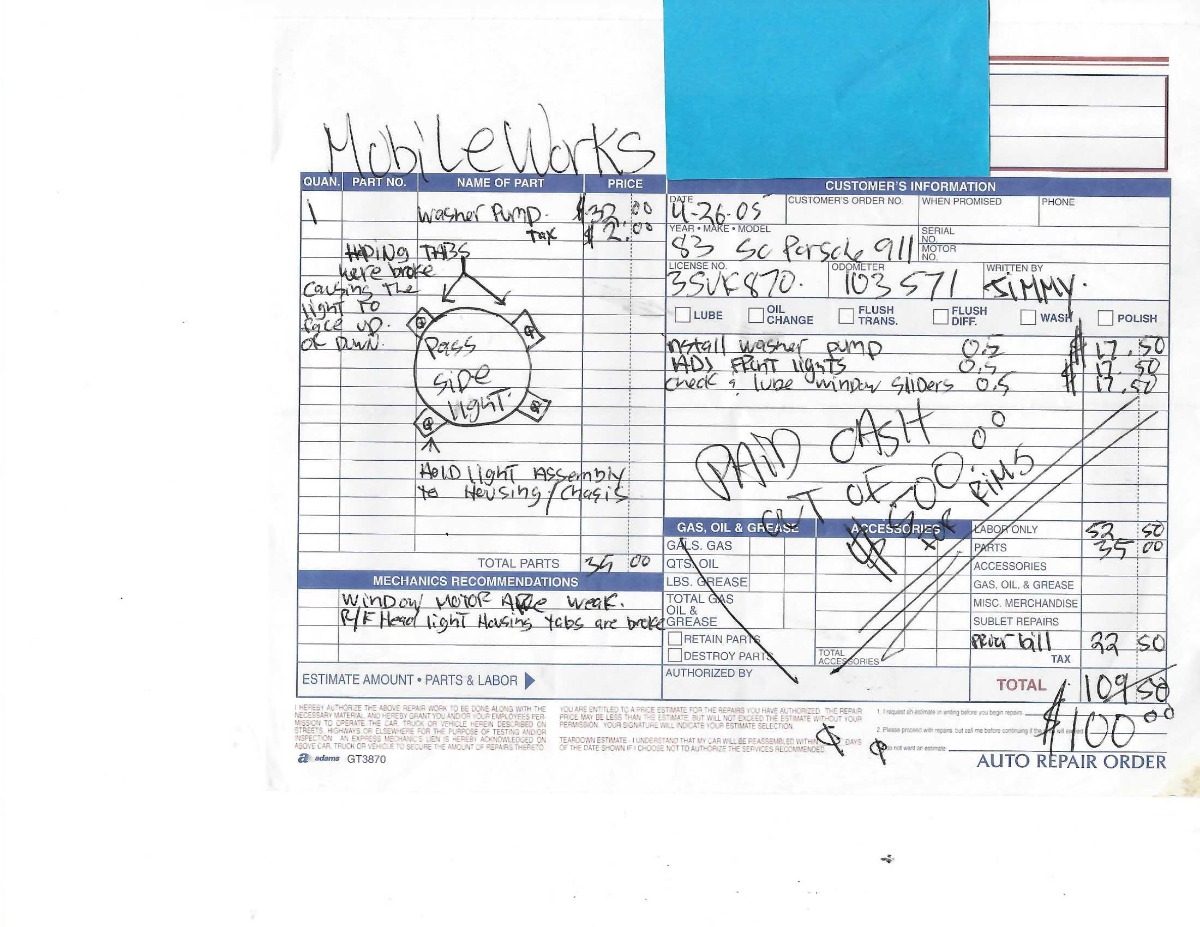 MobileWorks
QUAN. PART NO. NAME OF PART PRICE
1 Washer Pump. $32.00
Tax $2.00
TABS
were broke
causing the
light to
face up
or DOWN.
Pass
SiDe
light.
HOLD light Assembly
to Housing/Chasis
TOTAL PARTS 35 00
MECHANICS RECOMMENDATIONS
WINDOW MOTOR ARe weak.
R/F Head light Housing tabs are broke
ESTIMATE AMOUNT • PARTS & LABOR
CUSTOMER'S INFORMATION
DATE CUSTOMER'S ORDER NO. WHEN PROMISED PHONE
4-26-05
YEAR • MAKE • MODEL SERIAL NO.
83 SC Porsche 911 MOTOR NO.
LICENSE NO. ODOMETER WRITTEN BY
3SVK870. 103571 JIMMY.
LUBE OIL CHANGE FLUSH TRANS. FLUSH DIFF. WASH POLISH
install washer pump 0.5 $17.50
lights 0.5 17.50
check & lube window sliders 0.5 $17.50
PAiD CASH
OUT of
$500.00
for RiMS
GAS, OIL & GREASE ACCESSORIES LABOR ONLY 52 50
GALS. GAS PARTS 35 00
QTS. OIL ACCESSORIES
LBS. GREASE GAS, OIL, & GREASE
TOTAL GAS OIL & GREASE MISC. MERCHANDISE
SUBLET REPAIRS
RETAIN PARTS prior bill 22 50
DESTROY PARTS TOTAL ACCESSORIES TAX
AUTHORIZED BY TOTAL 109 50
$100 00
I HEREBY AUTHORIZE THE ABOVE REPAIR WORK TO BE DONE ALONG WITH THE
NECESSARY MATERIAL, AND HEREBY GRANT YOU AND/OR YOUR EMPLOYEES PER-
MISSION TO OPERATE THE CAR, TRUCK OR VEHICLE HEREIN DESCRIBED ON
STREETS, HIGHWAYS OR ELSEWHERE FOR THE PURPOSE OF TESTING AND/OR
INSPECTION. AN EXPRESS MECHANIC'S LIEN IS HEREBY ACKNOWLEDGED ON
ABOVE CAR, TRUCK OR VEHICLE TO SECURE THE AMOUNT OF REPAIRS THERETO.
YOU ARE ENTITLED TO A PRICE ESTIMATE FOR THE REPAIRS YOU HAVE AUTHORIZED. THE REPAIR
PRICE MAY BE LESS THAN THE ESTIMATE, BUT WILL NOT EXCEED THE ESTIMATE WITHOUT YOUR
PERMISSION. YOUR SIGNATURE WILL INDICATE YOUR ESTIMATE SELECTION.
TEARDOWN ESTIMATE - I UNDERSTAND THAT MY CAR WILL BE REASSEMBLED WITHIN DAYS
OF THE DATE SHOWN IF I CHOOSE NOT TO AUTHORIZE THE SERVICES RECOMMENDED.
1. I request an estimate in writing before you begin repairs
2. Please proceed with repairs, but call me before continuing if the
do not want an estimate
adams GT3870
AUTO REPAIR ORDER